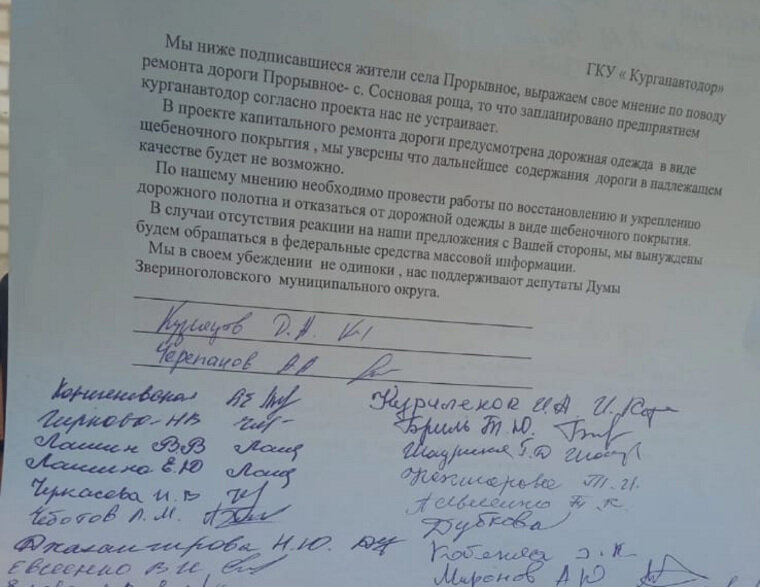 ГКУ « Курганавтодор»
Мы ниже подписавшиеся жители села Прорывное, выражаем свое мнение по поводу
ремонта дороги Прорывное- с. Сосновая роща, то что запланировано предприятием
курганавтодор согласно проекта нас не устраивает.
В проекте капитального ремонта дороги предусмотрена дорожная одежда в виде
щебеночного покрытия , мы уверены что дальнейшее содержания дороги в надлежащем
качестве будет не возможно.
По нашему мнению необходимо провести работы по восстановлению и укреплению
дорожного полотна и отказаться от дорожной одежды в виде щебеночного покрытия.
В случаи отсутствия реакции на наши предложения с Вашей стороны, мы вынуждены
будем обращаться в федеральные средства массовой информации.
Мы в своем убеждении не одиноки , нас поддерживают депутаты Думы
Звериноголовского муниципального округа.
Д.А.
Черепанов АА
Куриленок И.А.
Бриль Т.Ю.
Лашин В.В Лащ
Лашина Е.Ю Лащ
Т.И.
Черкасова И.В
Чеботов Л.М.
Дубкова
Джахангирова Н.Ю.
Евсеенко В И
Миронов А Ю